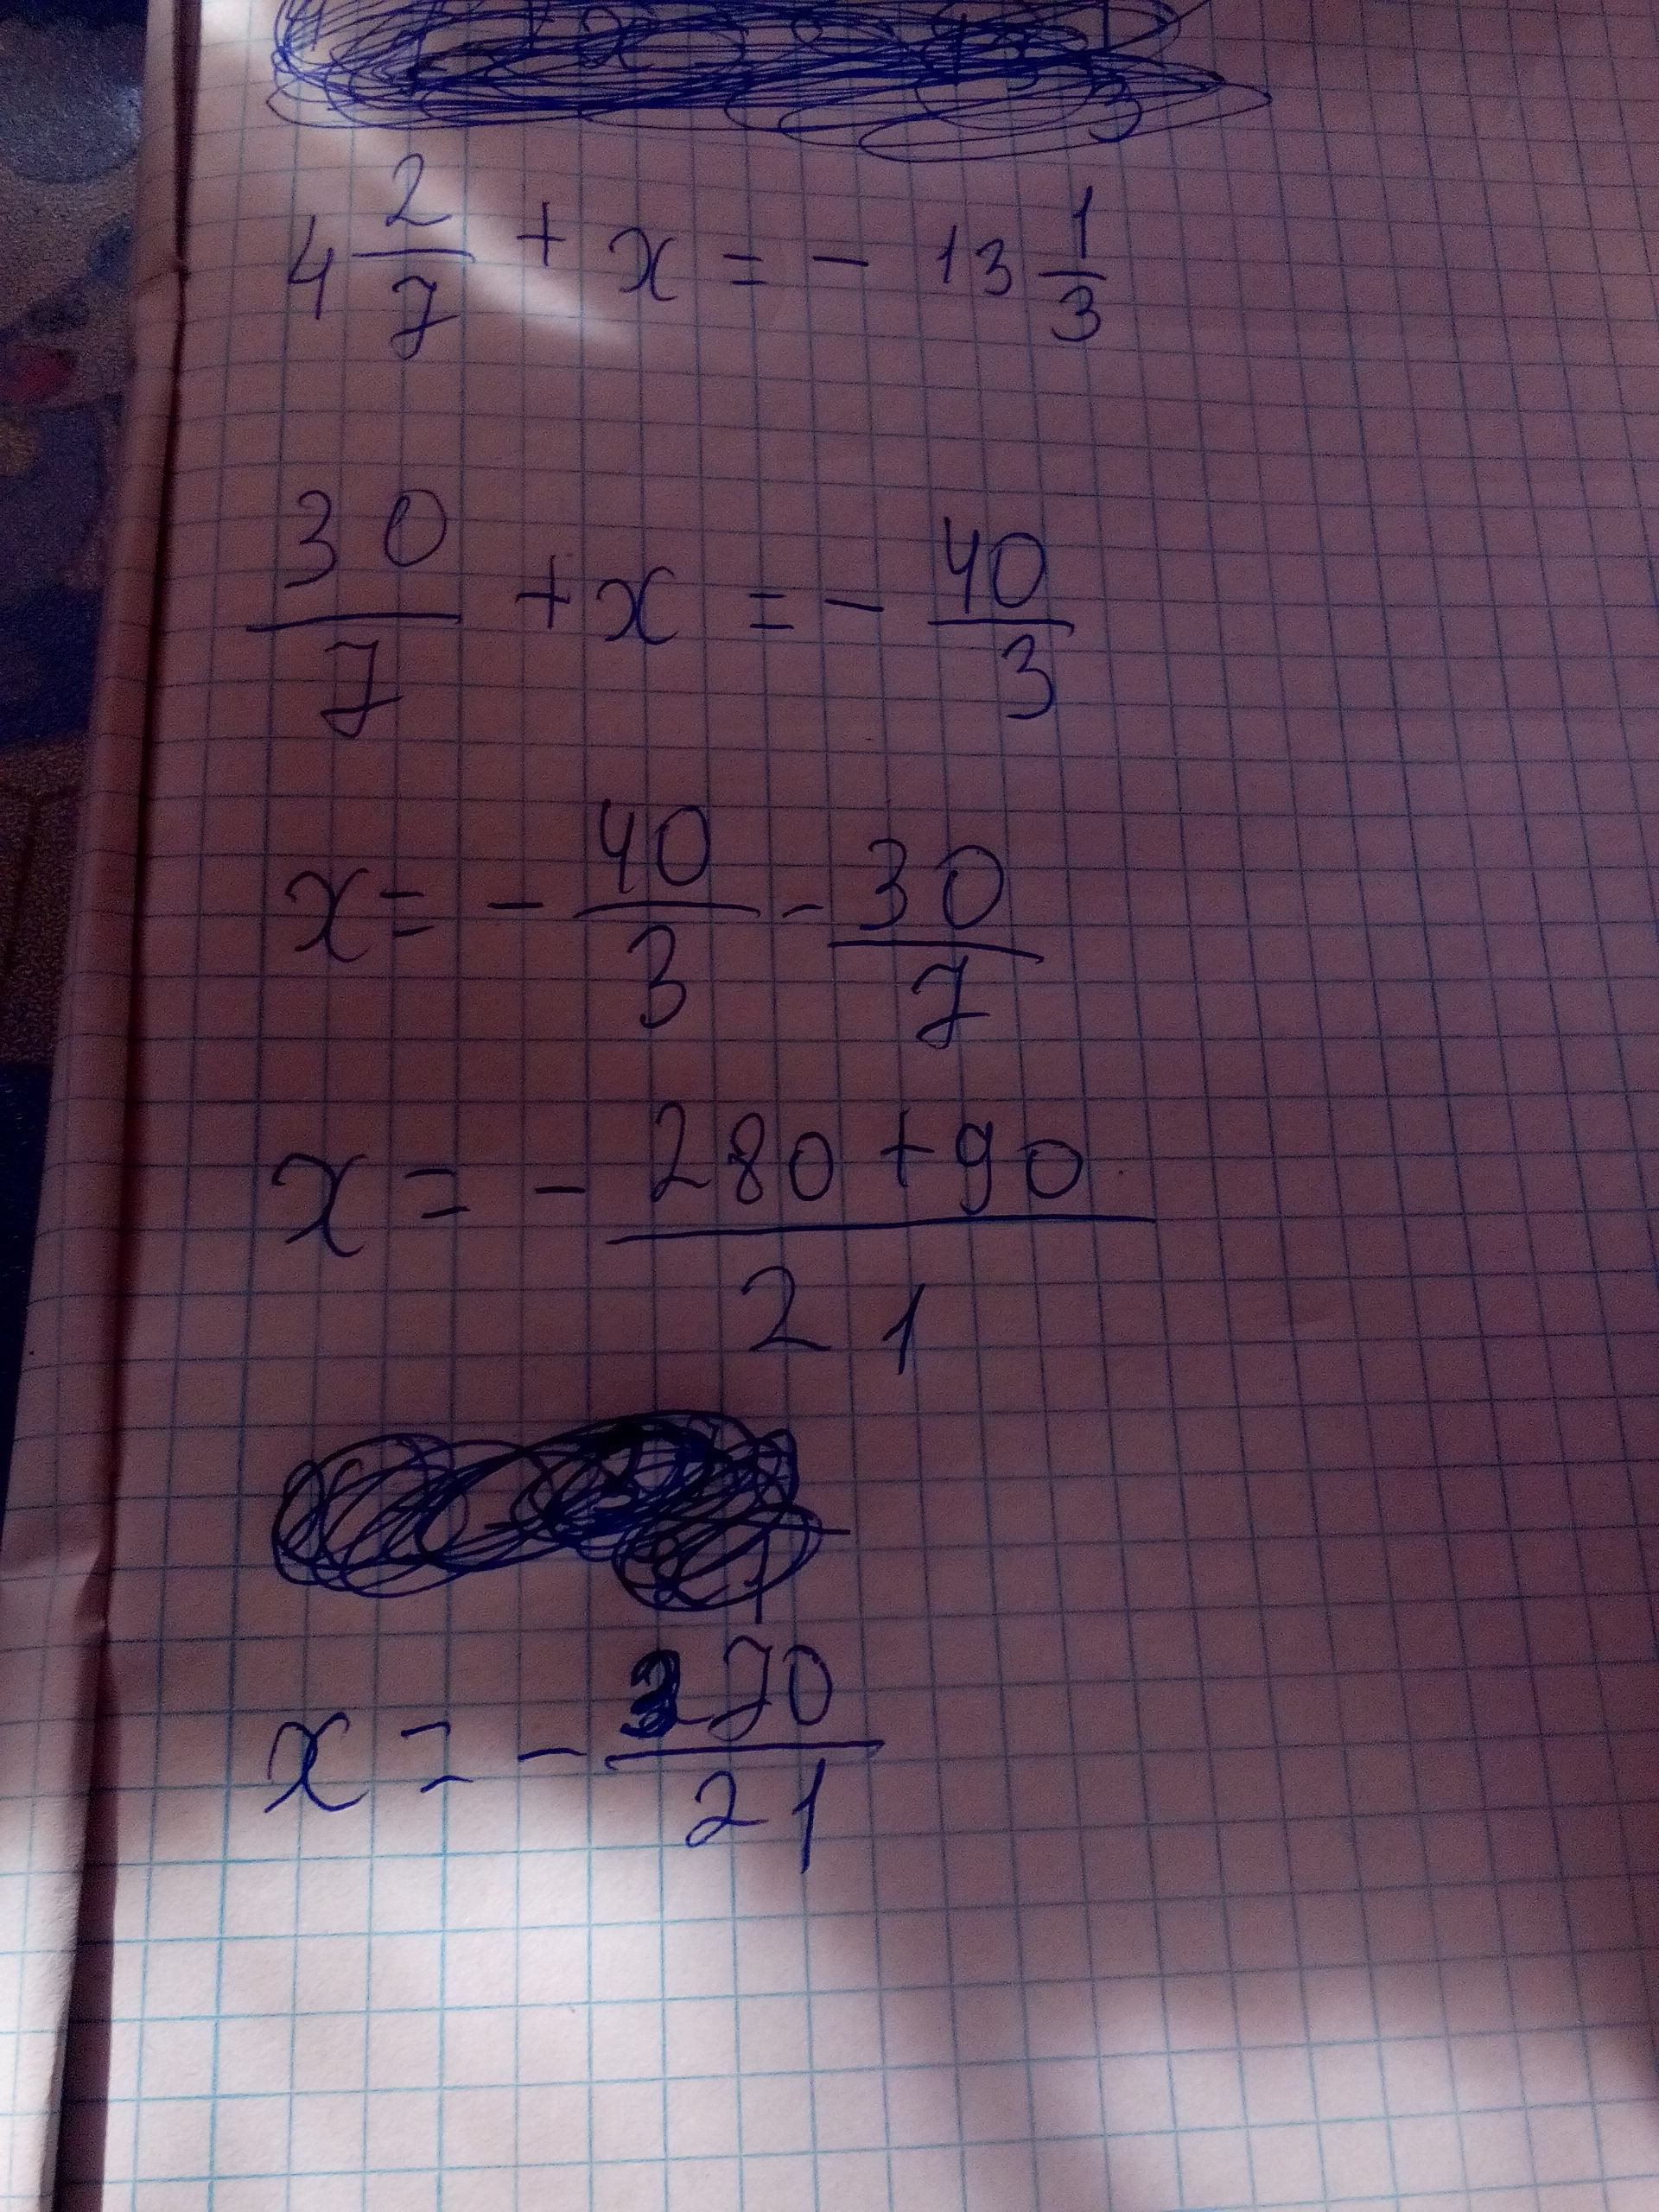 4 2/7 + x = - 13 1/3
30/7 + x = - 40/3
x = - 40/3 - 30/7
x = - 280 + 90/21
x = - 370/21